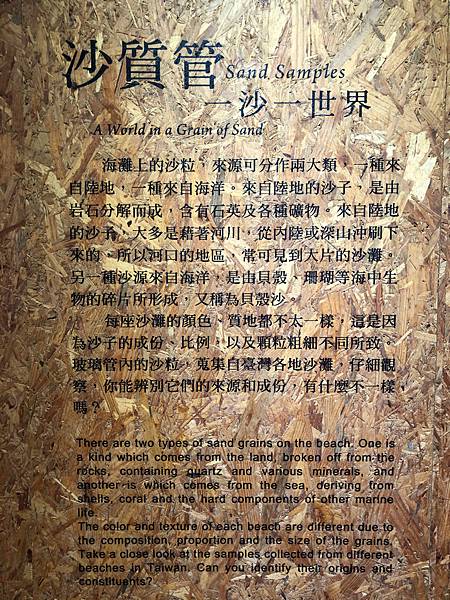 沙質管 Sand Samples
一沙一世界
A World in a Grain of Sand
海灘上的沙粒，來源可分作兩大類，一種來
自陸地，一種來自海洋。來自陸地的沙子，是由
岩石分解而成，含有石英及各種礦物。來自陸地
的沙子，大多是藉著河川，從內陸或深山沖刷下
來的，所以河口的地區，常可見到大片的沙灘。
另一種沙源來自海洋，是由貝殼、珊瑚等海中生
物的碎片所形成，又稱為貝殼沙。
每座沙灘的顏色、質地都不太一樣，這是因
為沙子的成份、比例，以及顆粒粗細不同所致。
玻璃管內的沙粒，蒐集自臺灣各地沙灘，仔細觀
察，你能辨別它們的來源和成份，有什麼不一樣
嗎？
There are two types of sand grains on the beach. One is
a kind which comes from the land, broken off from the
rocks, containing quartz and various minerals, and
another is which comes from the sea, deriving from
shells, coral and the hard components of other marine
life.
The color and texture of each beach are different due to
the composition, proportion and the size of the grains.
Take a close look at the samples collected from different
beaches in Taiwan. Can you identify their origins and
constituents?